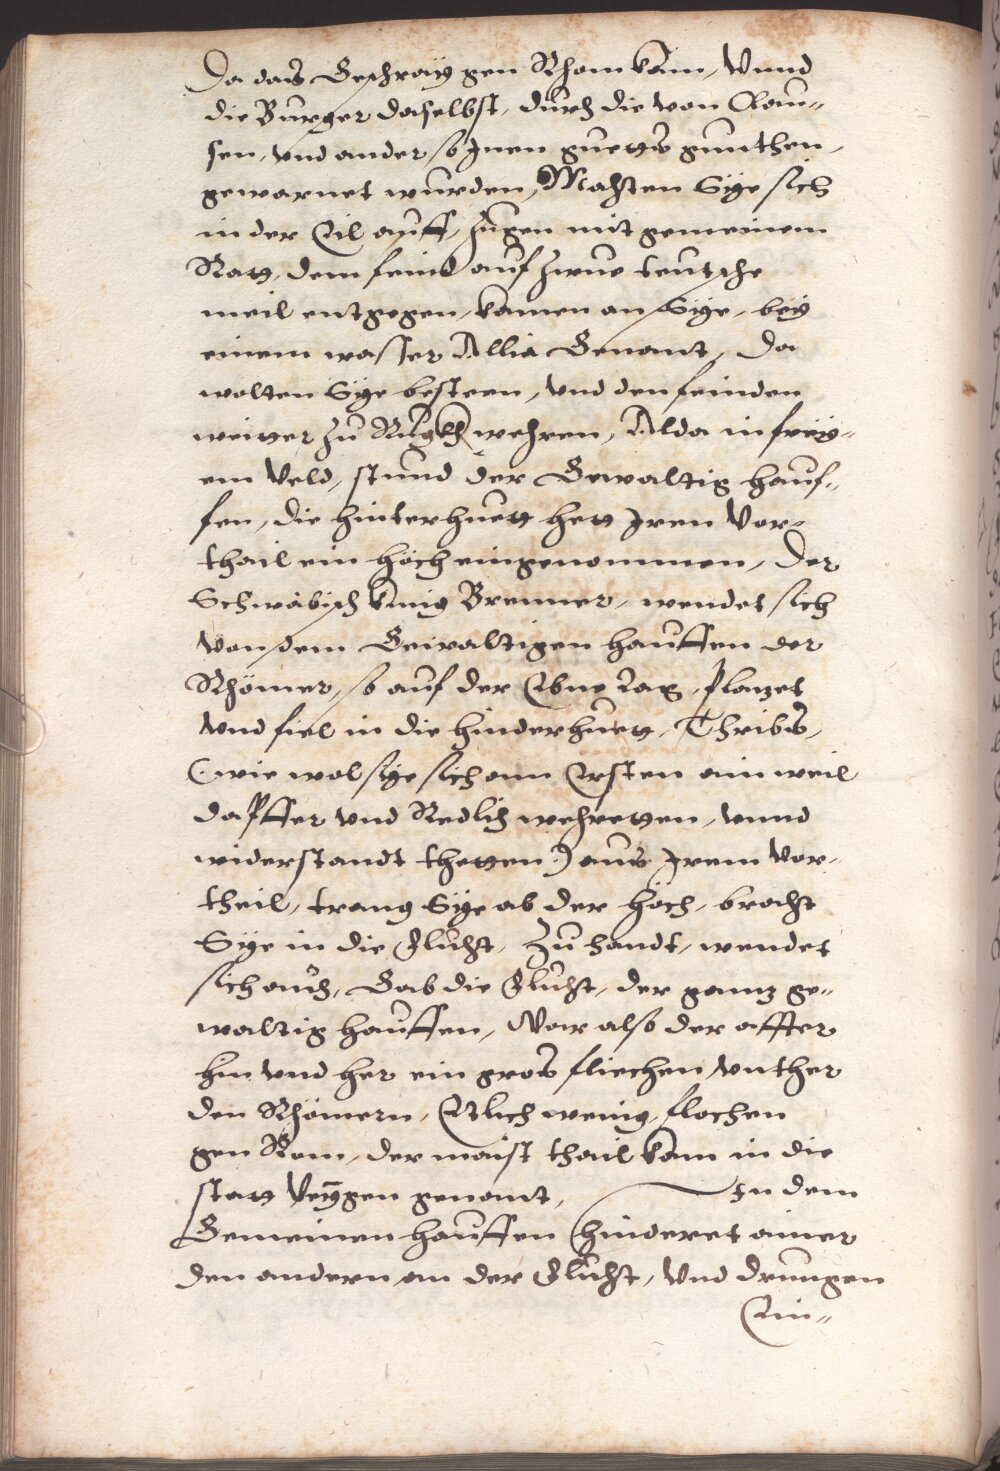 Da das Geschray gen Rhom kam, Vnnd
die Burger daselbst, durch die von Clau=
sen, vnd ander so Jnen guetts gunthen,
gewarnet wurden, Machten Sye sich
in der Eil auff, zugen mit gemeinem
Ratt, dem feind auf zwue teutsche
meil entgegen, kamen an Sye, bey
einem wasser Allia Genant, Da
wolten Sye besteen, vnd den feinden
weitter zu Rugkh wehren, Alda in frey=
em Veld, stund der Gewaltig hauf=
fen, die hinterhuett hett Jren Vor=
thail ein höch eingenommen, Der
Schwäbisch künig Brenner, wendet sich
Von dem Gewaltigen hauffen der
Rhömer, so auf der Ebne lag, planzet
vnd fiel in die hinderhuett, Thribs,
(wie wol sye sich am Ersten ain weil
dapffer vnd Redlich wehretten, vnnd
widerstandt thetten:) aus Jrem Vor=
theil, trang Sye ab der höch, bracht
Sye in die Flucht, Zu handt, wendet
sich auch, Gab die Flucht, der gannz ge=
waltig hauffen, War also der affter
hin vnd her ein gros fliechen vnther
den Rhömern, Etlich wenig flochen
gen Rom, der maist thail kam in die
statt Veygen genant, Jn dem
Gemeinen hauffen hinderet ainer
den andern an der Flucht, Vnd drungen
Ein=